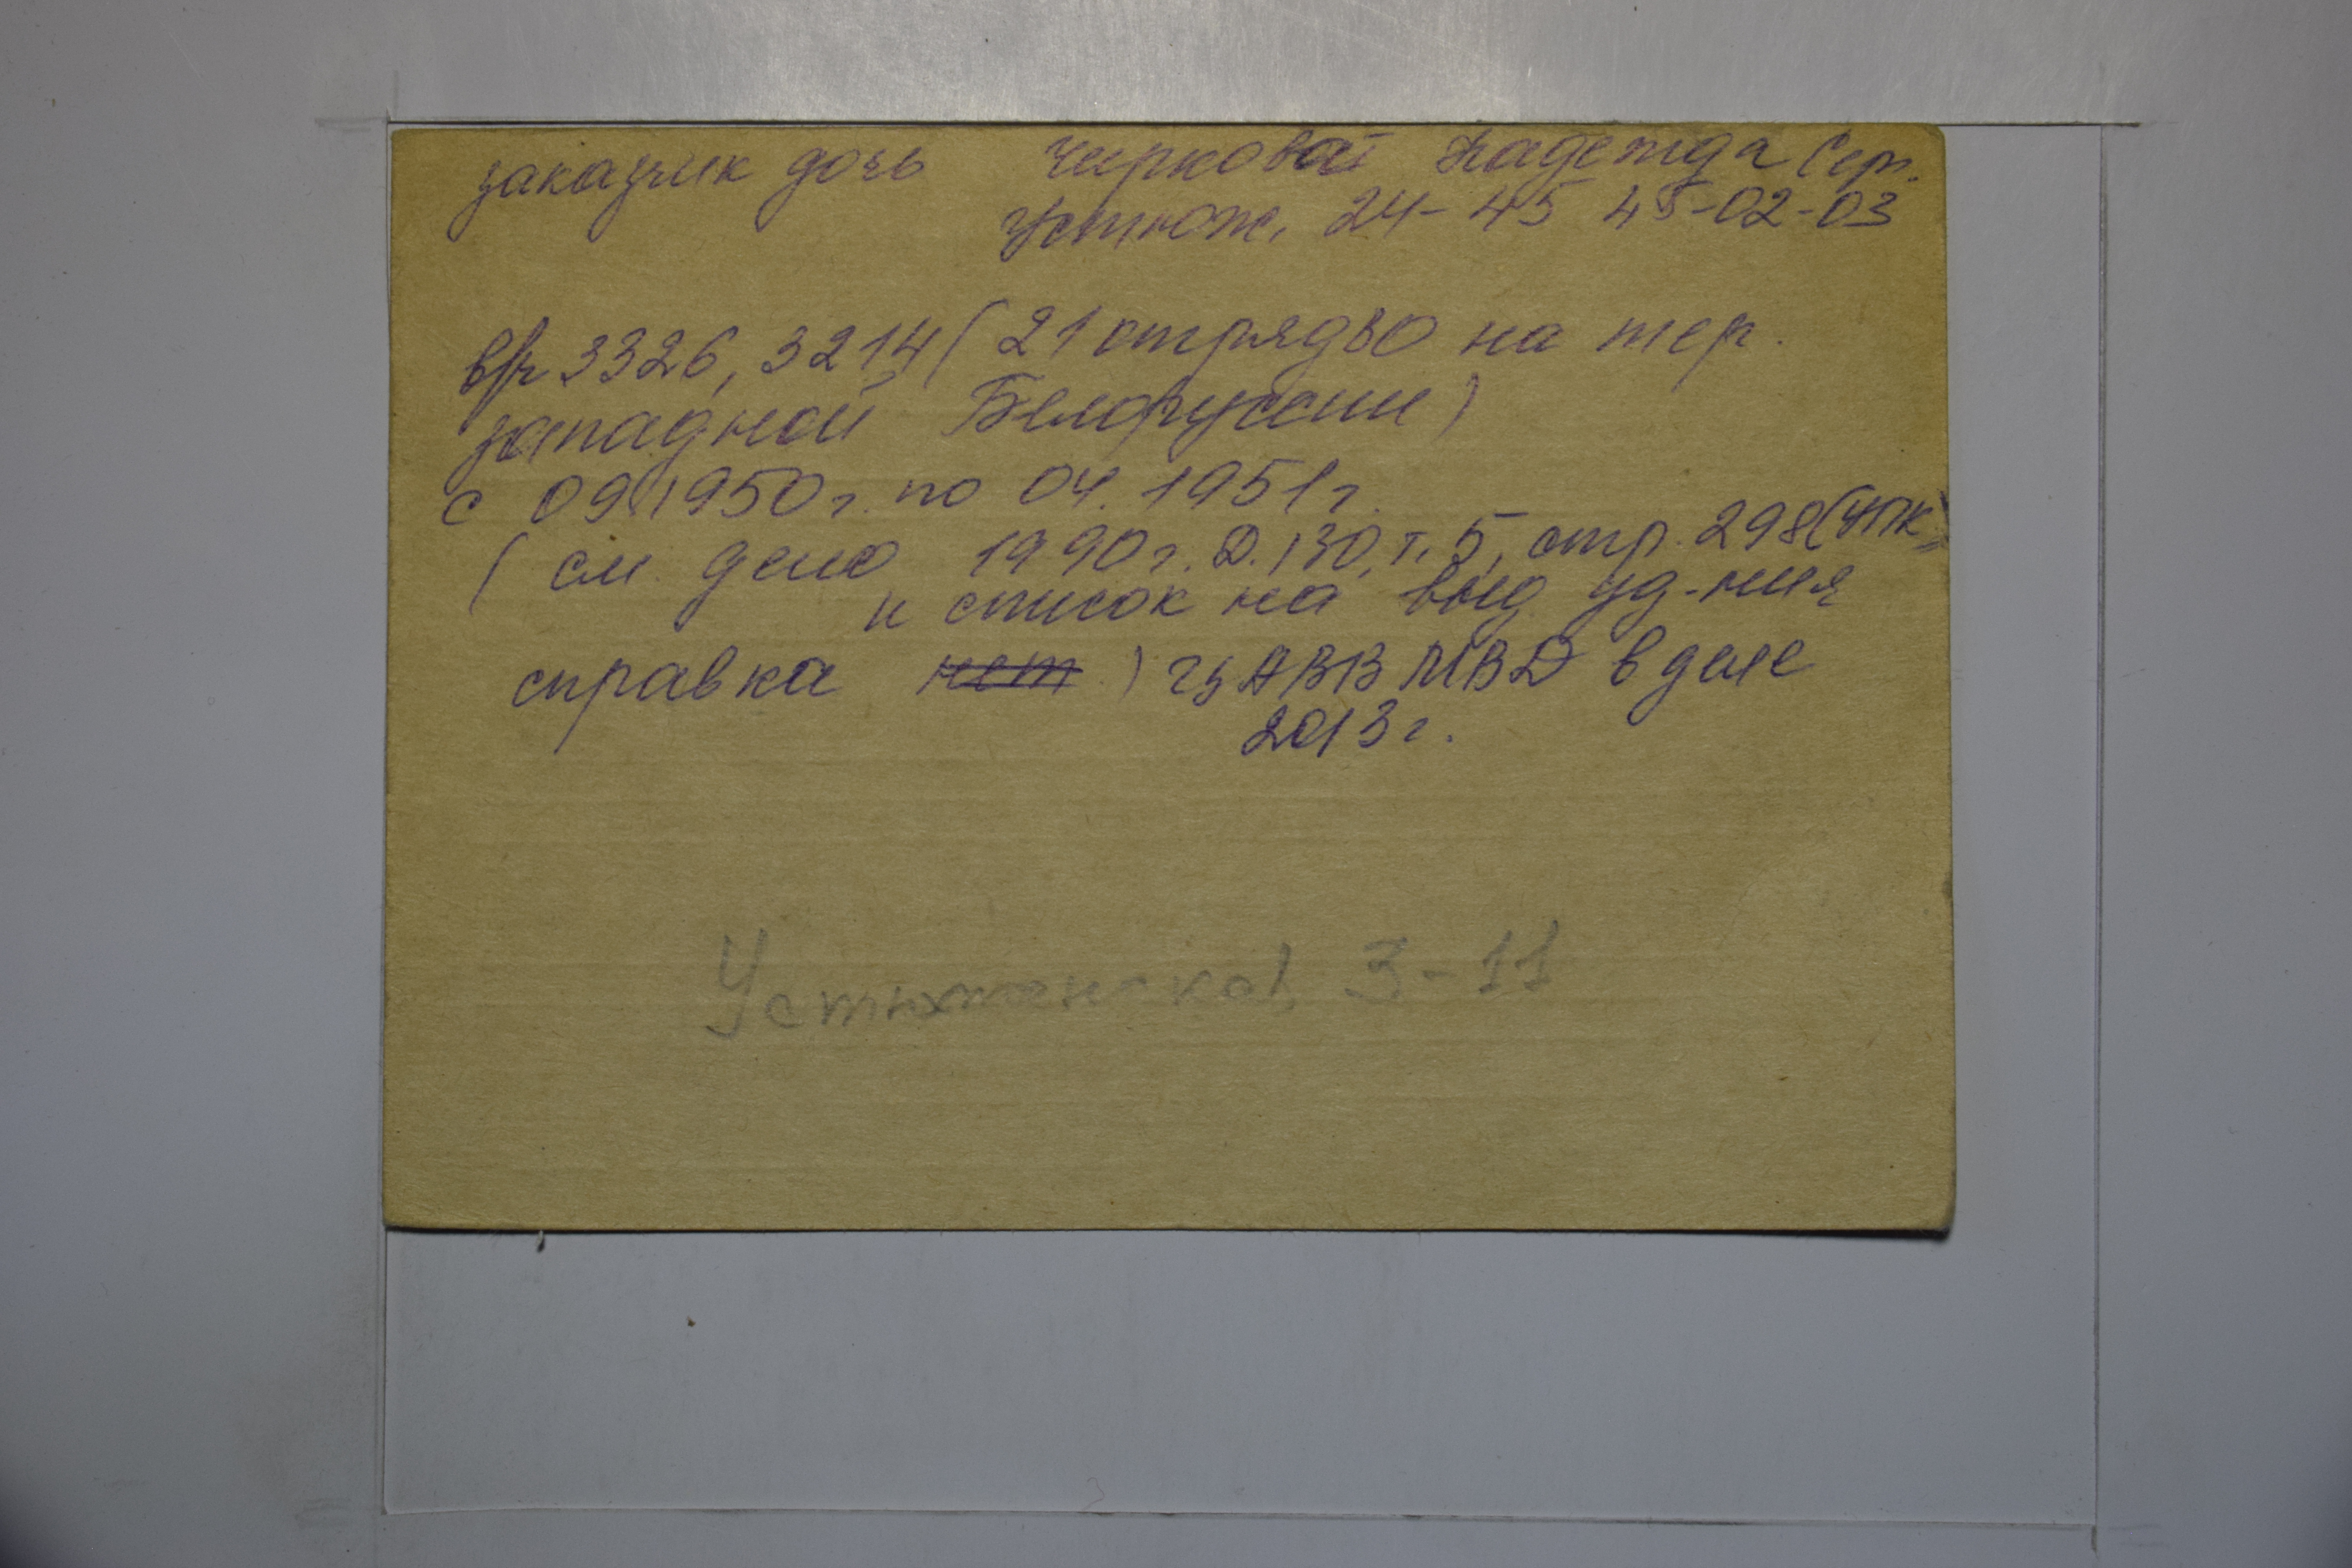 заказчик дочь Чиркова Надежда Серг.
Устюж. 24-45 45-02-03
в/ч 3326, 3214 (21 отряд ВО на тер.
западной Белоруссии)
с 09.1950г. по 04.1951г.
(см. дело 1990г. Д.130, т.5, стр. 298 (УПК)
и список на выд. уд-ния
справка нет) ЦАВВ МВД в деле
2013г.
Устюженская, 3-11